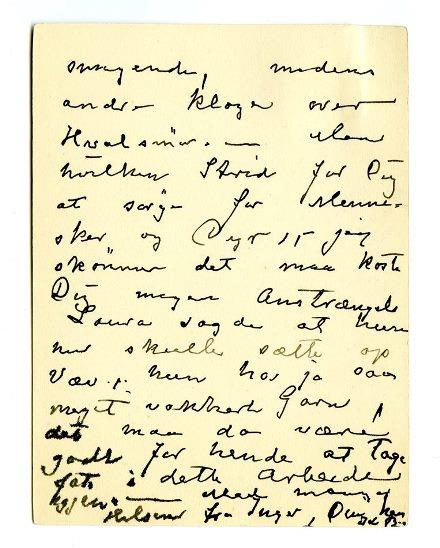 smagende, medens
andre klager over
Hvalsmör. — Men
hvilken Strid for Dig
at sørge for Menne-
sker og Dyr, jeg
skönner det maa koste
Dig megen Anstrængelse
Laura sagde at hun
nu skulle sætte op
Væv, hun har ja saa
meget vakkert Garn,
det maa da være
godt for hende at tage
fat i dette Arbeide
igjen. — Med mange
Hilsener fra Inger,